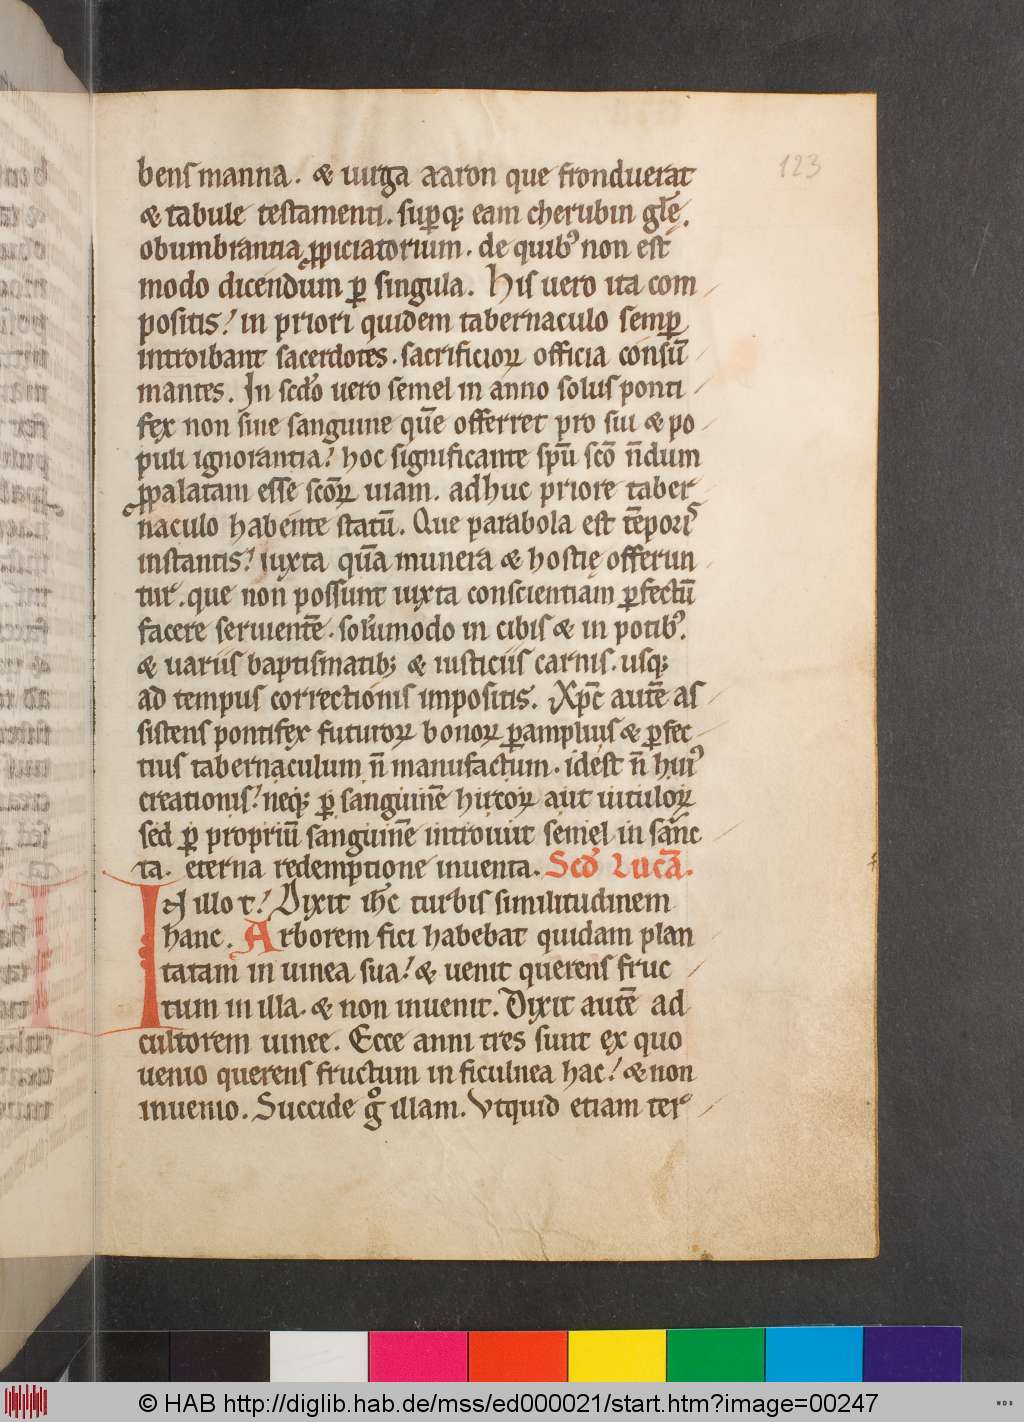 123
bens manna. & uirga aaron que fronduerat
& tabule testamenti. sup̱q; eam cherubin gl̄ę.
obumbrantia ꝓpiciatorium. de quibꝰ non est
modo dicendum ꝑ singula. His uero ita com
positis! in priori quidem tabernaculo semꝑ
introibant sacerdotes. sacrificioꝝ officia consū
mantes. In scd̄o uero semel in anno solus ponti
fex non sine sanguine quē offerret pro sui & po
puli ignorantia! hoc significante spū scō n̄dum
ꝓpalatam esse scōꝝ uiam. adhuc priore taber
naculo habente statū. Que parabola est tēporis
instantis! iuxta quā munera & hostię offerun
tur͛. que non possunt iuxta conscientiam ꝑfectū
facere seruientē. solūmodo in cibis & in potibꝰ.
& uariis baptismatib; & iusticiis carnis. usq;
ad tempus correctionis impositis. Xp̄c autē as
sistens pontifex futuroꝝ bonoꝝ ꝑ amplius & ꝑfec
tius tabernaculum n̄ manufactum. idest n̄ huiꝰ
creationis! neq; ꝑ sanguinē hircoꝝ aut uituloꝝ
sed ꝑ propriū sanguinē introiuit semel in sanc
ta. eterna redemptione inuenta. Scd̄ Lucā.
In illo t! Dixit ih̄c turbis similitudinem
hanc. Arborem fici habebat quidam plan
tatam in uinea sua! & uenit querens fruc
tum in illa. & non inuenit. Dixit autē ad
cultorem uinee. Ecce anni tres sunt ex quo
uenio querens fructum in ficulnea hac! & non
inuenio. Succide gͦ illam. Vtquid etiam terͣ
© HAB http://diglib.hab.de/mss/ed000021/start.htm?image=00247